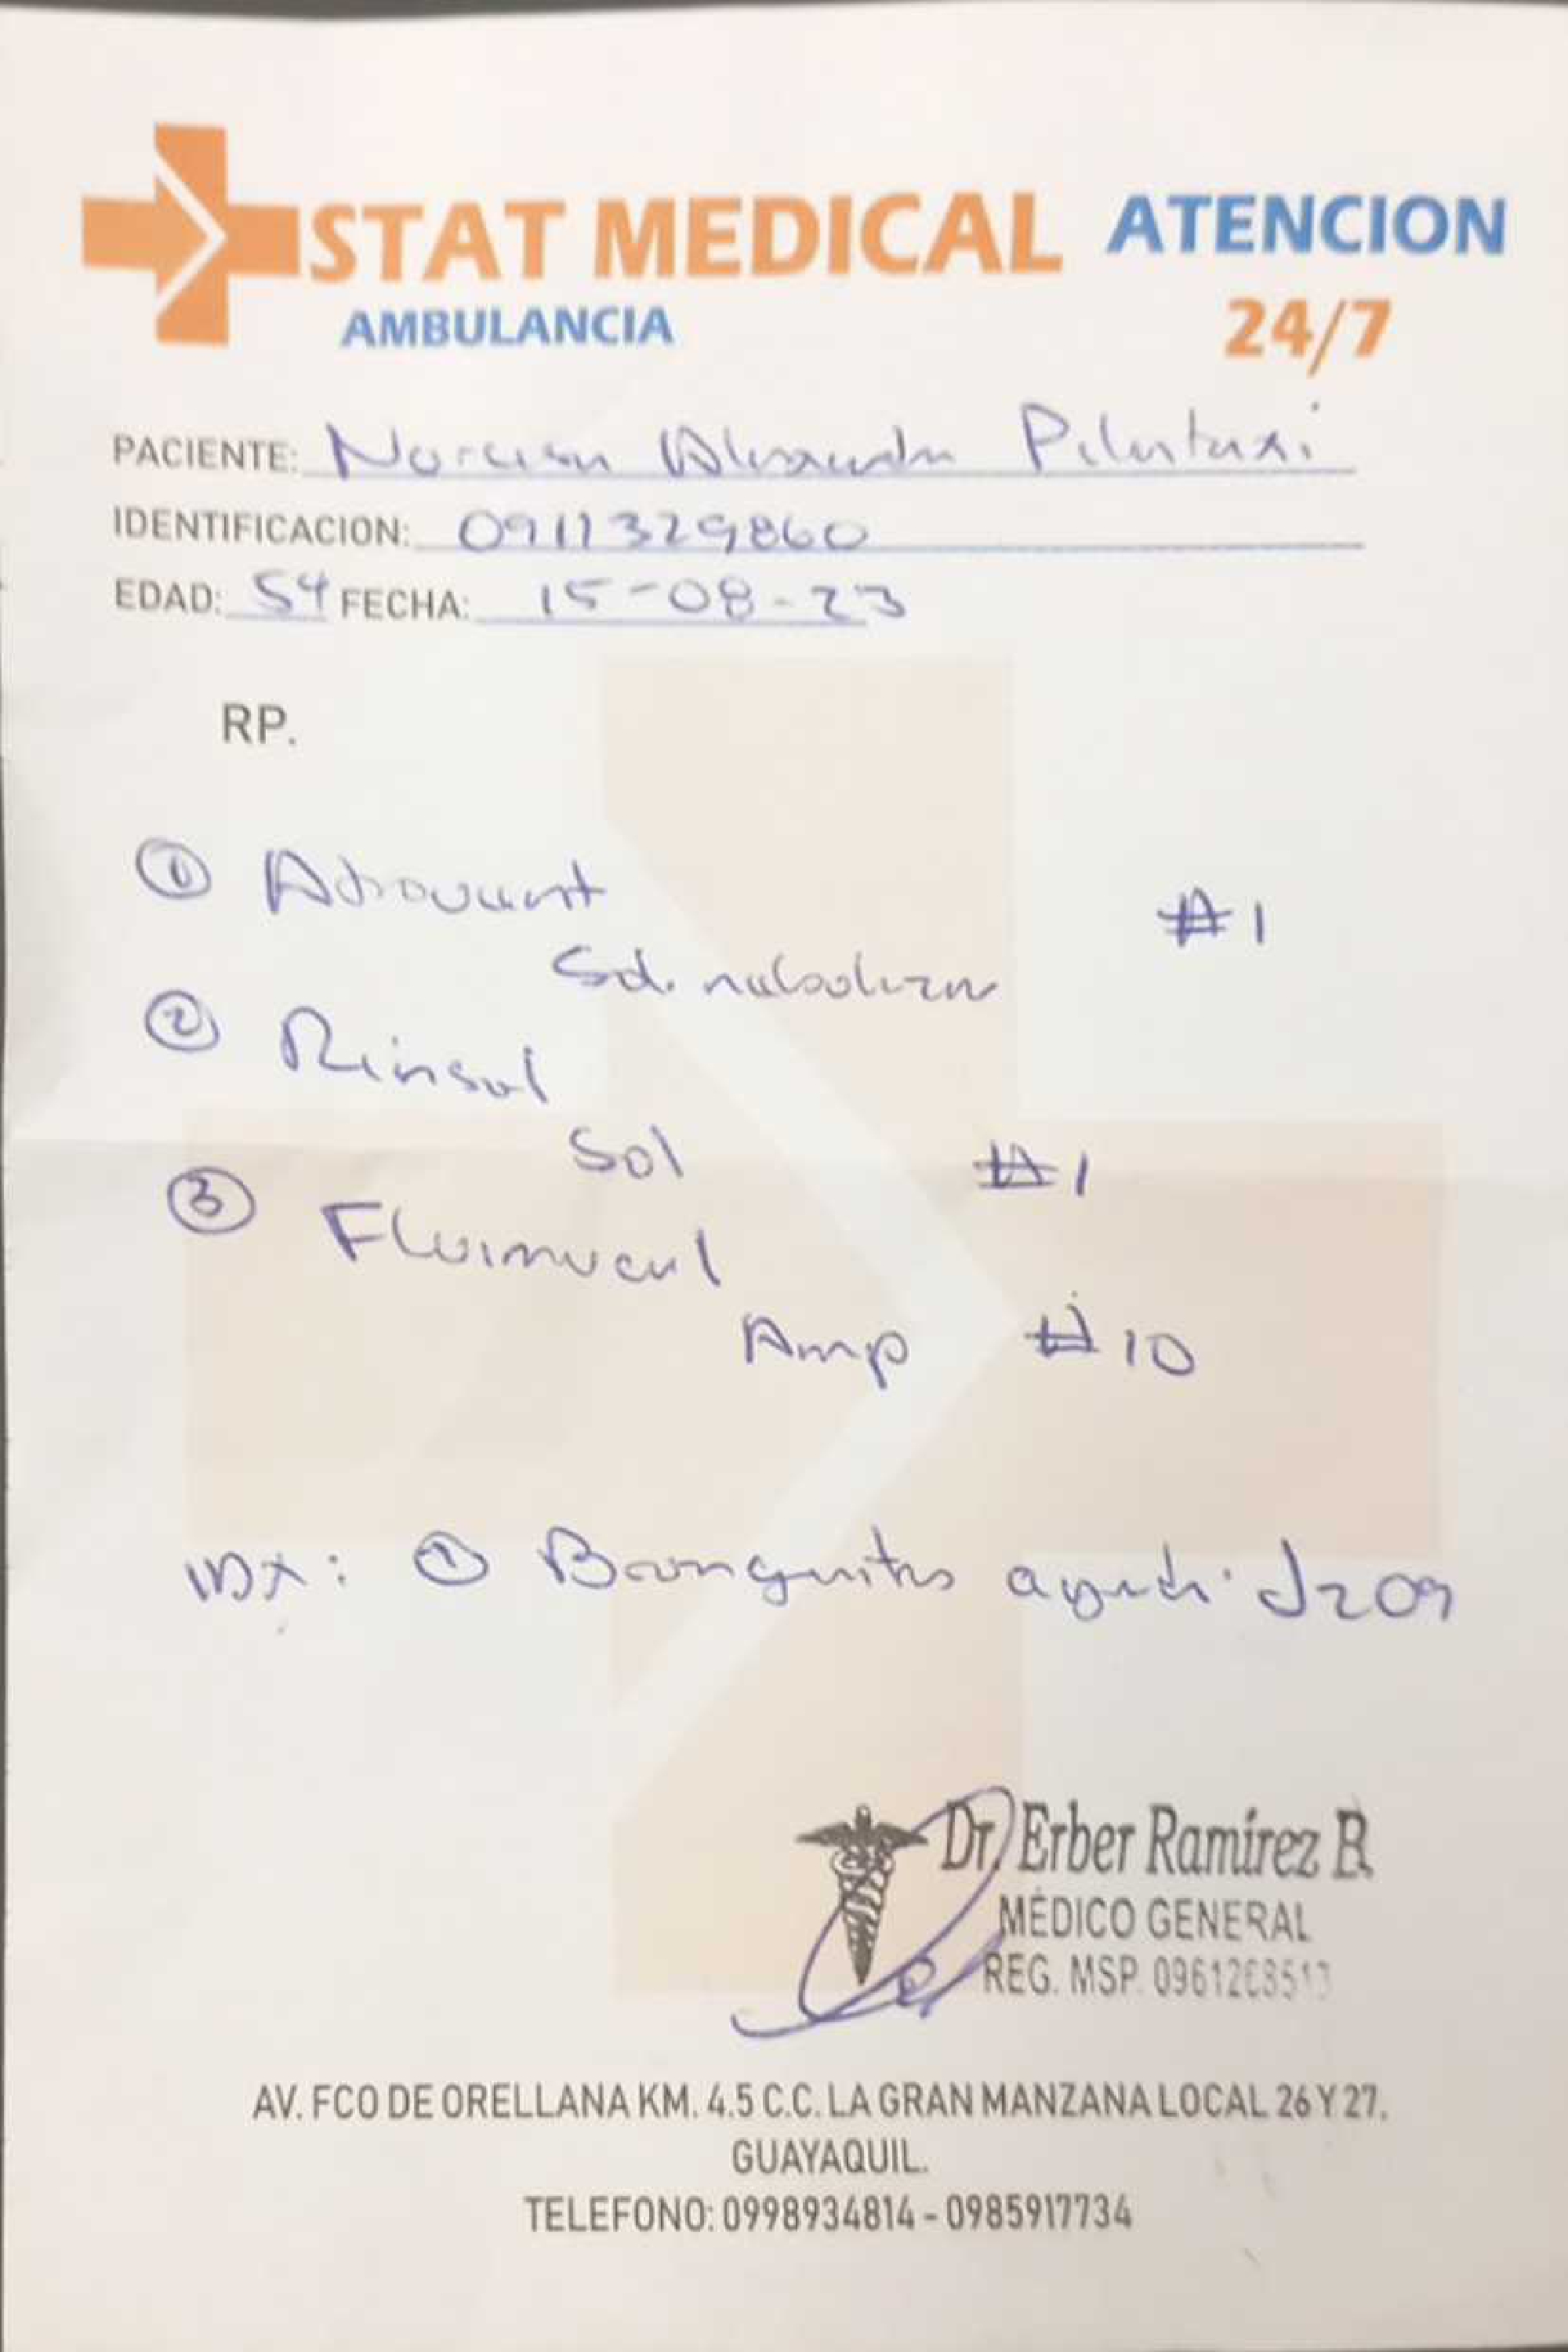 STAT MEDICAL ATENCION
AMBULANCIA 24/7
PACIENTE: Narcisa Pilataxi
IDENTIFICACION: 0911329860
EDAD: 54 FECHA: 15-08-23
RP.
① #1
Sol.
② Rinsol
Sol #1
③ Fluimucil
Amp #10
IDX: ① Bronquitis aguda J209
Dr. Erber Ramírez B.
MÉDICO GENERAL
REG. MSP.
AV. FCO DE ORELLANA KM. 4.5 C.C. LA GRAN MANZANA LOCAL 26 Y 27.
GUAYAQUIL.
TELEFONO: 0998934814 - 0985917734